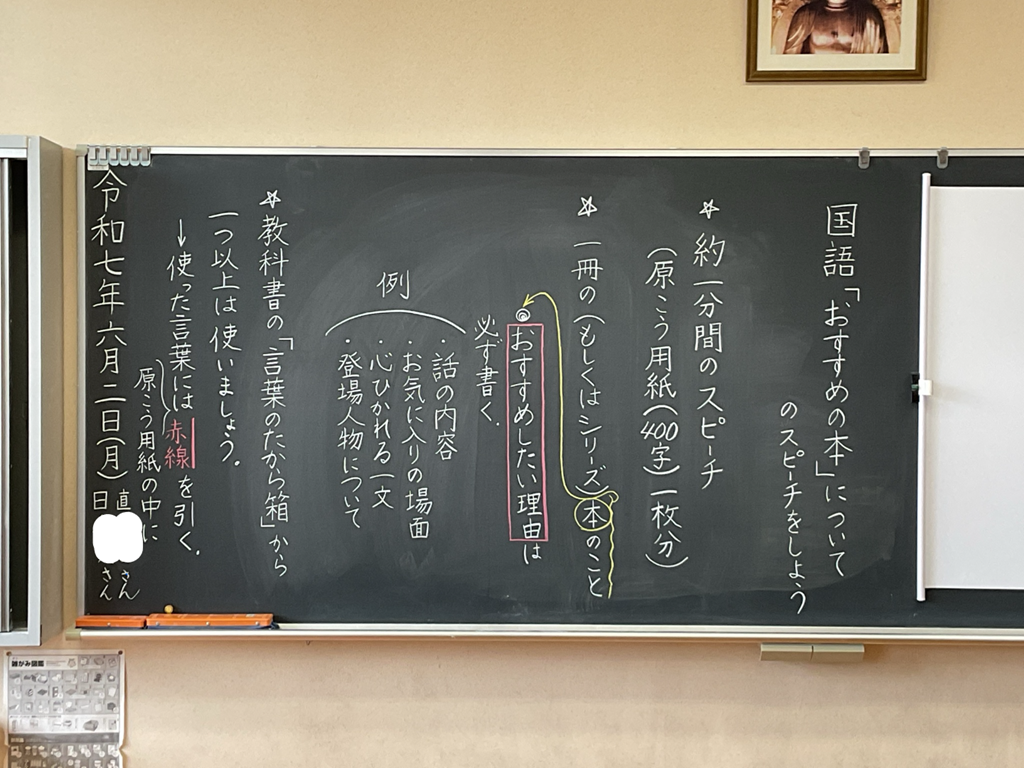 国語「おすすめの本」について
のスピーチをしよう
☆約一分間のスピーチ
(原こう用紙(400字)一枚分)
☆一冊の(もしくはシリーズ)本のこと
◎おすすめしたい理由は
必ず書く。
例
・話の内容
・お気に入りの場面
・心ひかれる一文
・登場人物について
☆教科書の「言葉のたから箱」から
一つ以上は使いましょう。
→使った言葉には赤線を引く。
原こう用紙の中に
令和七年六月二日(月)
日直
さん
さん
雑がみ図鑑